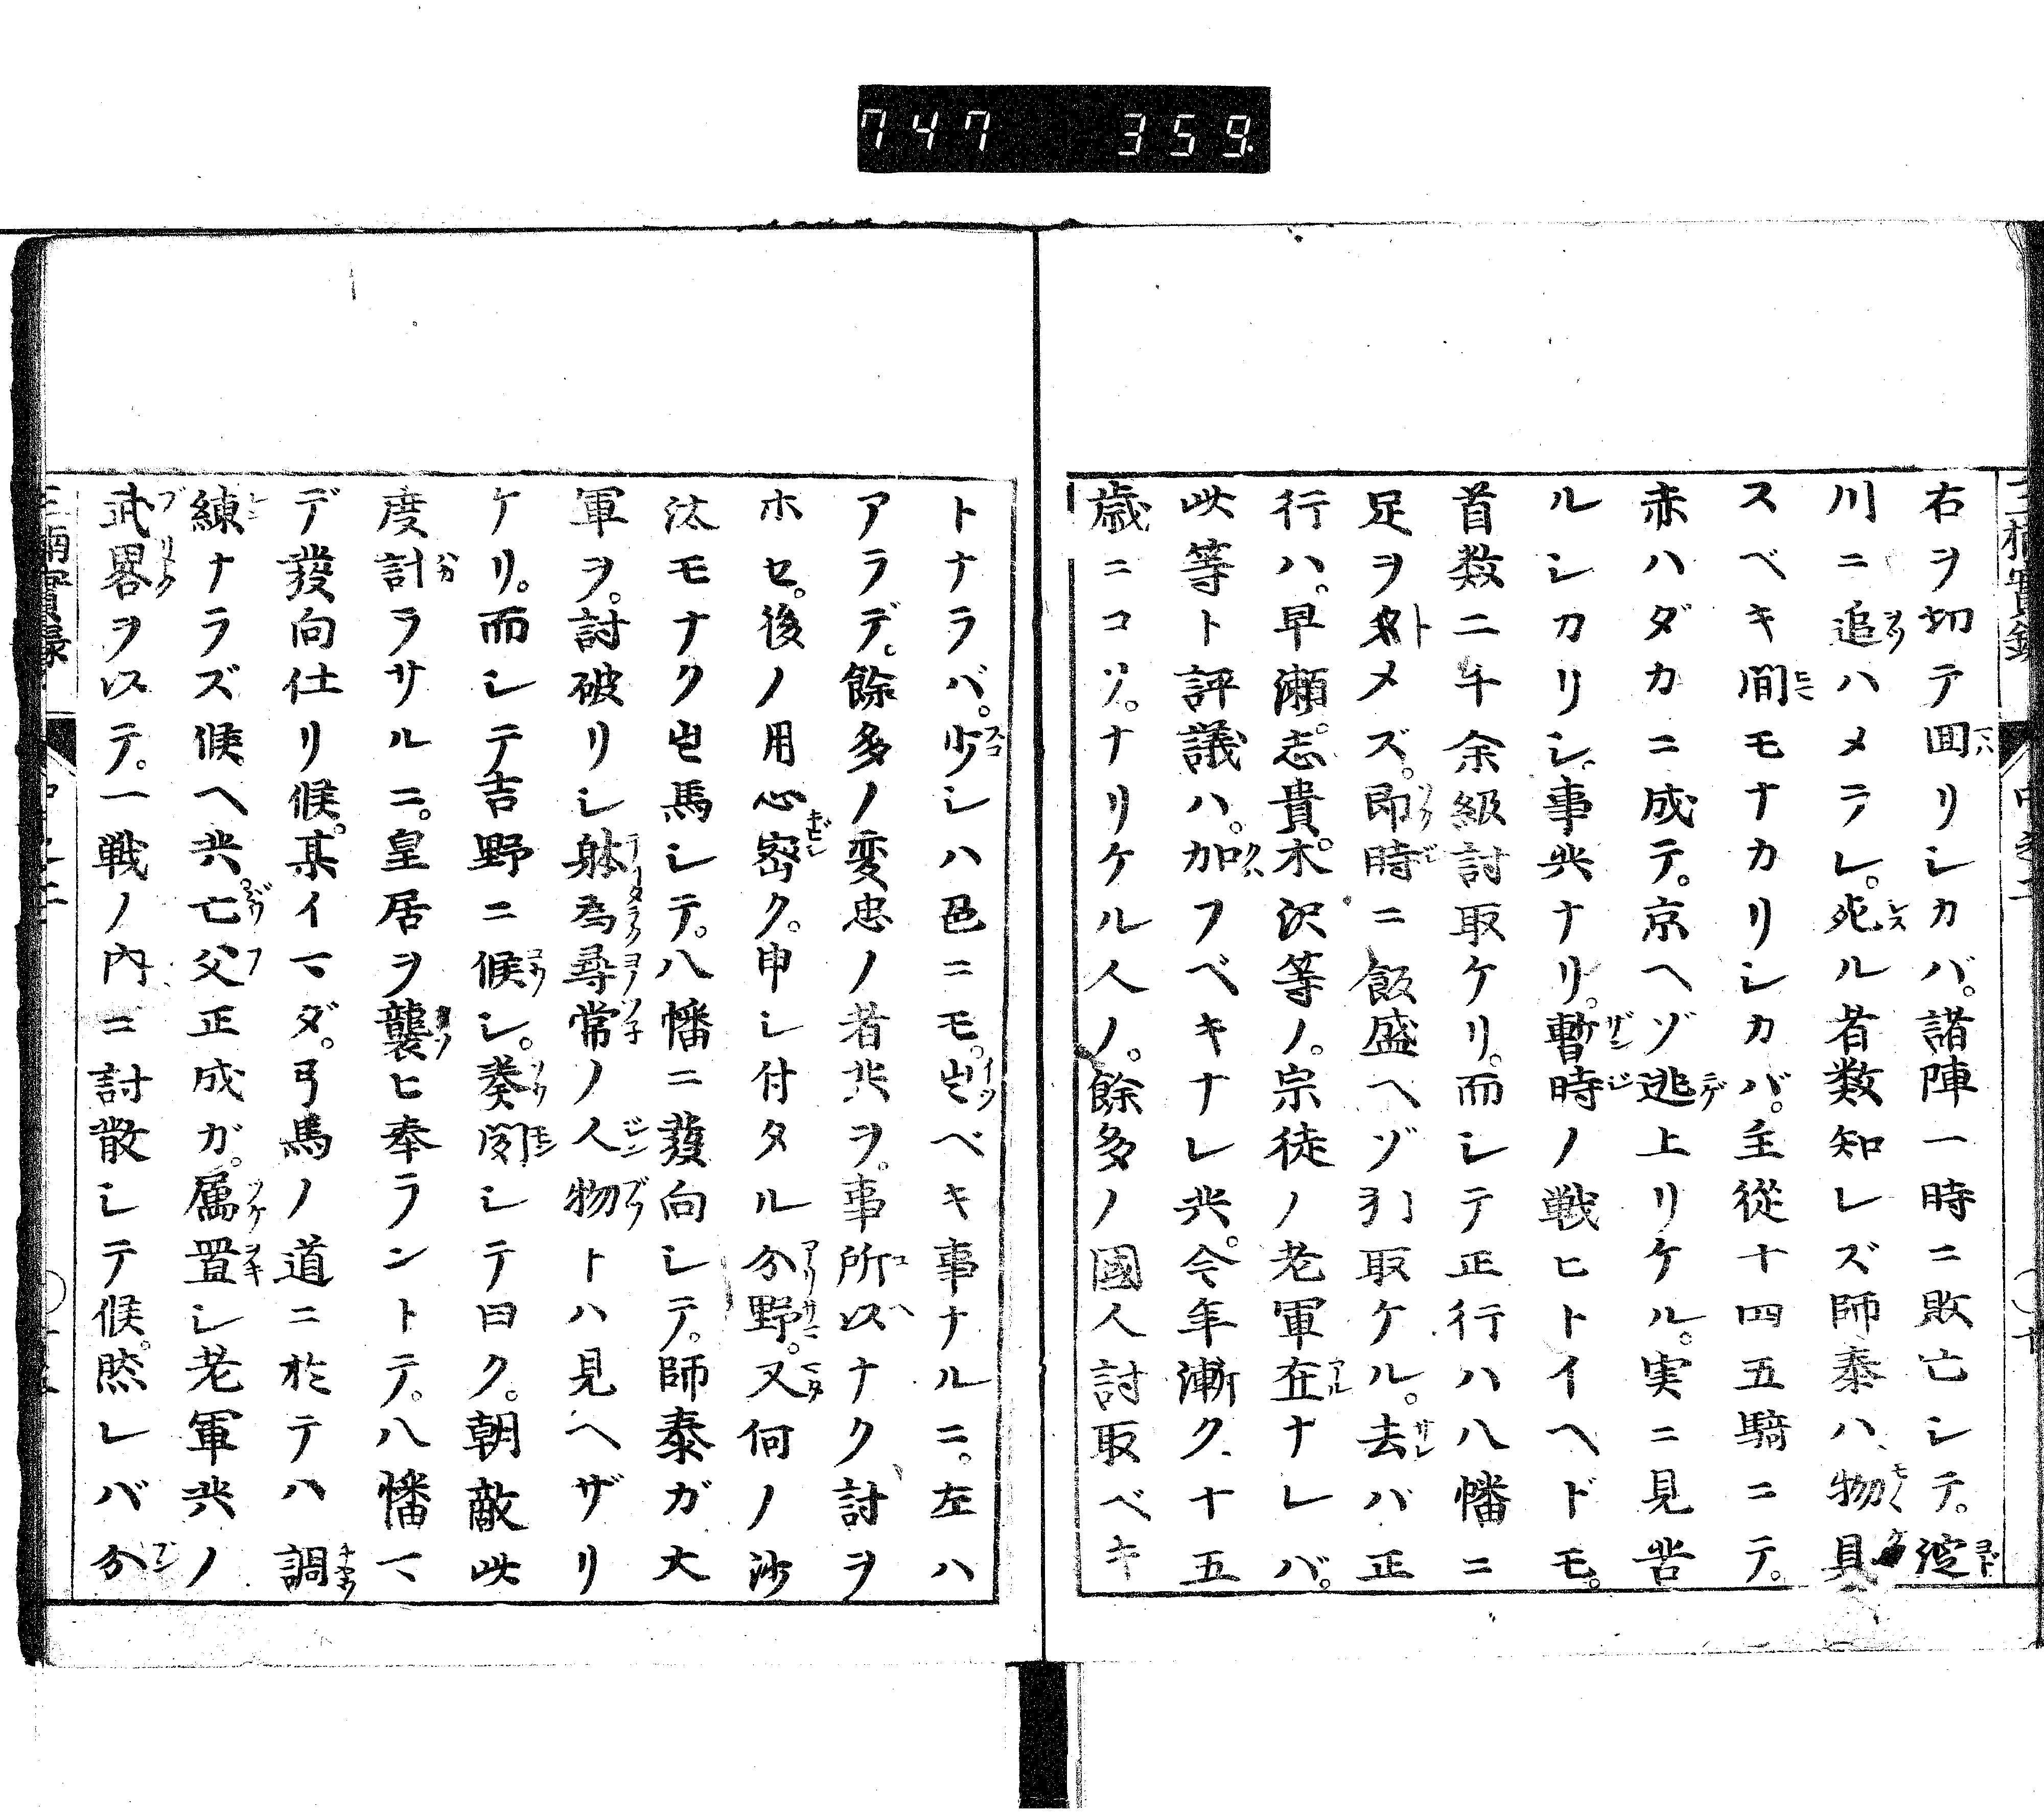 747 359
右ヲ切テ囬リシカバ。諸陣一時ニ敗亡シテ。淀
川ニ追ハメラレ。死ル者数知レズ師泰ハ、物具
スベキ間モナカリシカバ。主從十四五騎ニテ。
赤ハダカニ成テ。京ヘゾ逃上リケル。実ニ見苦
ルシカリシ事共ナリ。暫時ノ戦ヒトイヘドモ。
首数二千余級討取ケリ。而シテ正行ハ八幡ニ
足ヲタメズ。即時ニ飯盛ヘゾ引取ケル。去バ正
行ハ。早瀬。志貴。木沢等ノ。宗徒ノ老軍在ナレバ。
此等ト評議ハ。加フベキナレ共。今年漸ク、十五
歳ニコソ。ナリケル人ノ。餘多ノ國人討取ベキ
トナラバ。少シハ色ニモ。出ベキ事ナルニ。左ハ
アラデ。餘多ノ変忠ノ者共ヲ。事所以ナク討ヲ
ホセ。後ノ用心密ク。申シ付タル分野。又何ノ沙
汰モナク出馬シテ。八幡ニ發向シテ。師泰ガ大
軍ヲ。討破リシ躰為尋常ノ人物トハ見ヘザリ
ケリ。而シテ吉野ニ候シ。奏聞シテ曰ク。朝敵此
度計ラサルニ。皇居ヲ襲ヒ奉ラントテ。八幡マ
デ發向仕リ候。某イマダ。弓馬ノ道ニ於テハ調
練ナラズ候ヘ共。亡父正成ガ。属置シ老軍共ノ
武畧ヲ以テ。一戦ノ内ニ討散シテ候。然レバ分